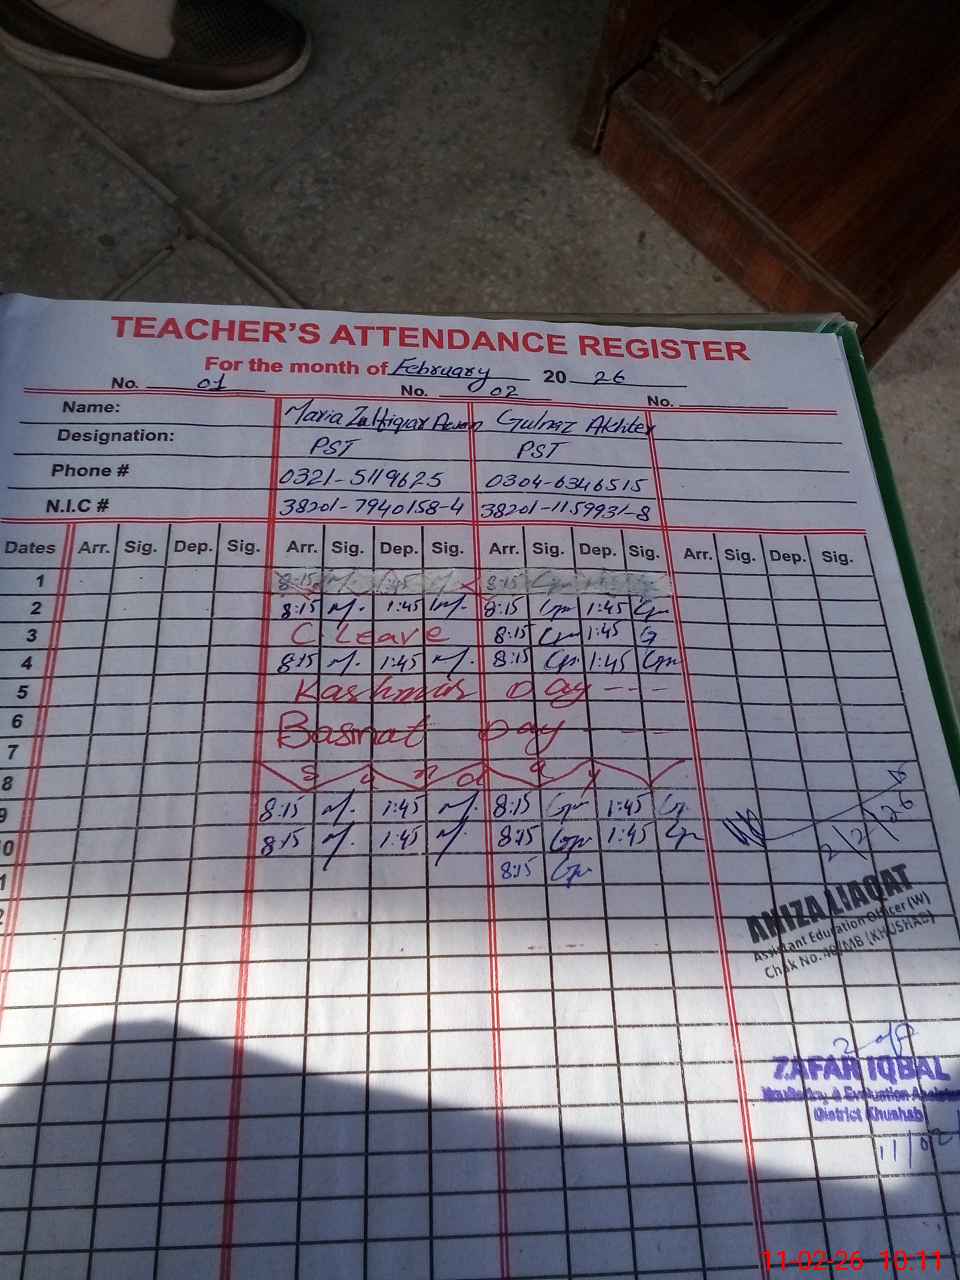 TEACHER'S ATTENDANCE REGISTER
For the month of February 20 26
No. 01 No. 02 No.
Name: Maria Zulfiqar Awan Gulnaz Akhter
Designation: PST PST
Phone # 0321-5119625 0304-6346515
N.I.C # 38201-7940158-4 38201-1159931-8
Dates Arr. Sig. Dep. Sig. Arr. Sig. Dep. Sig. Arr. Sig. Dep. Sig. Arr. Sig. Dep. Sig.
1 8:15 M. 1:45 M. 8:15
2 8:15 M. 1:45 M. 8:15 Gn 1:45 Gn
3 C Leave 8:15 Gn 1:45 G
4 8:15 M. 1:45 M. 8:15 Gn 1:45 Gn
5 Kashmir Day - - -
6 Basnat Day - - -
7
8 S u n d a y
9 8:15 M. 1:45 M. 8:15 Gn 1:45 Gn
0 8:15 M. 1:45 M. 8:15 Gn 1:45 Gn
2/2/26
1 8:15 Gn
2
ANIZA LIAQAT
Assistant Education Officer (W)
Chak No. 40/MB (KHUSHAB)
ZAFAR IQBAL
Monitoring & Evaluation Assistant
District Khushab
11/02
11-02-26 10:11